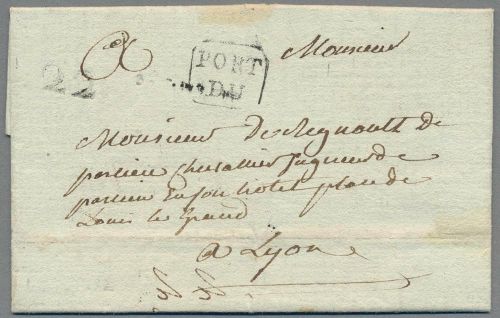 A Monsieur
22
PORT
DU
Monsieur De Regnault de
parcieu Chevallier seigneur de
parcieu En son hotel place de
Louis le Grand
a Lyon